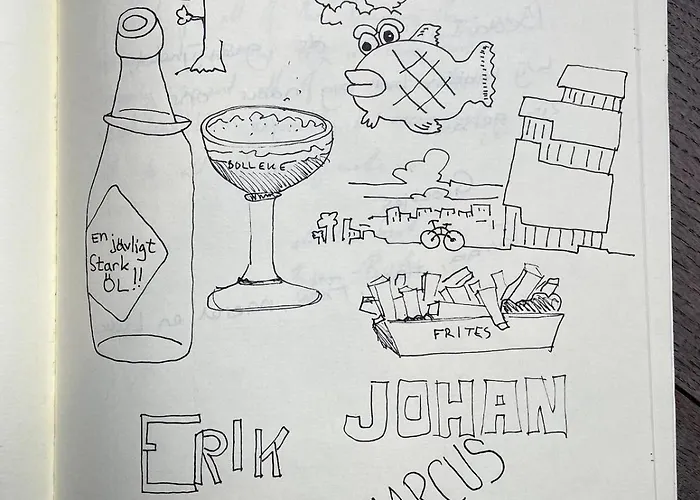 BOLLEKE
En jävligt
Stark
ÖL!!
FRITES
JOHAN
ERIK
MARCUS